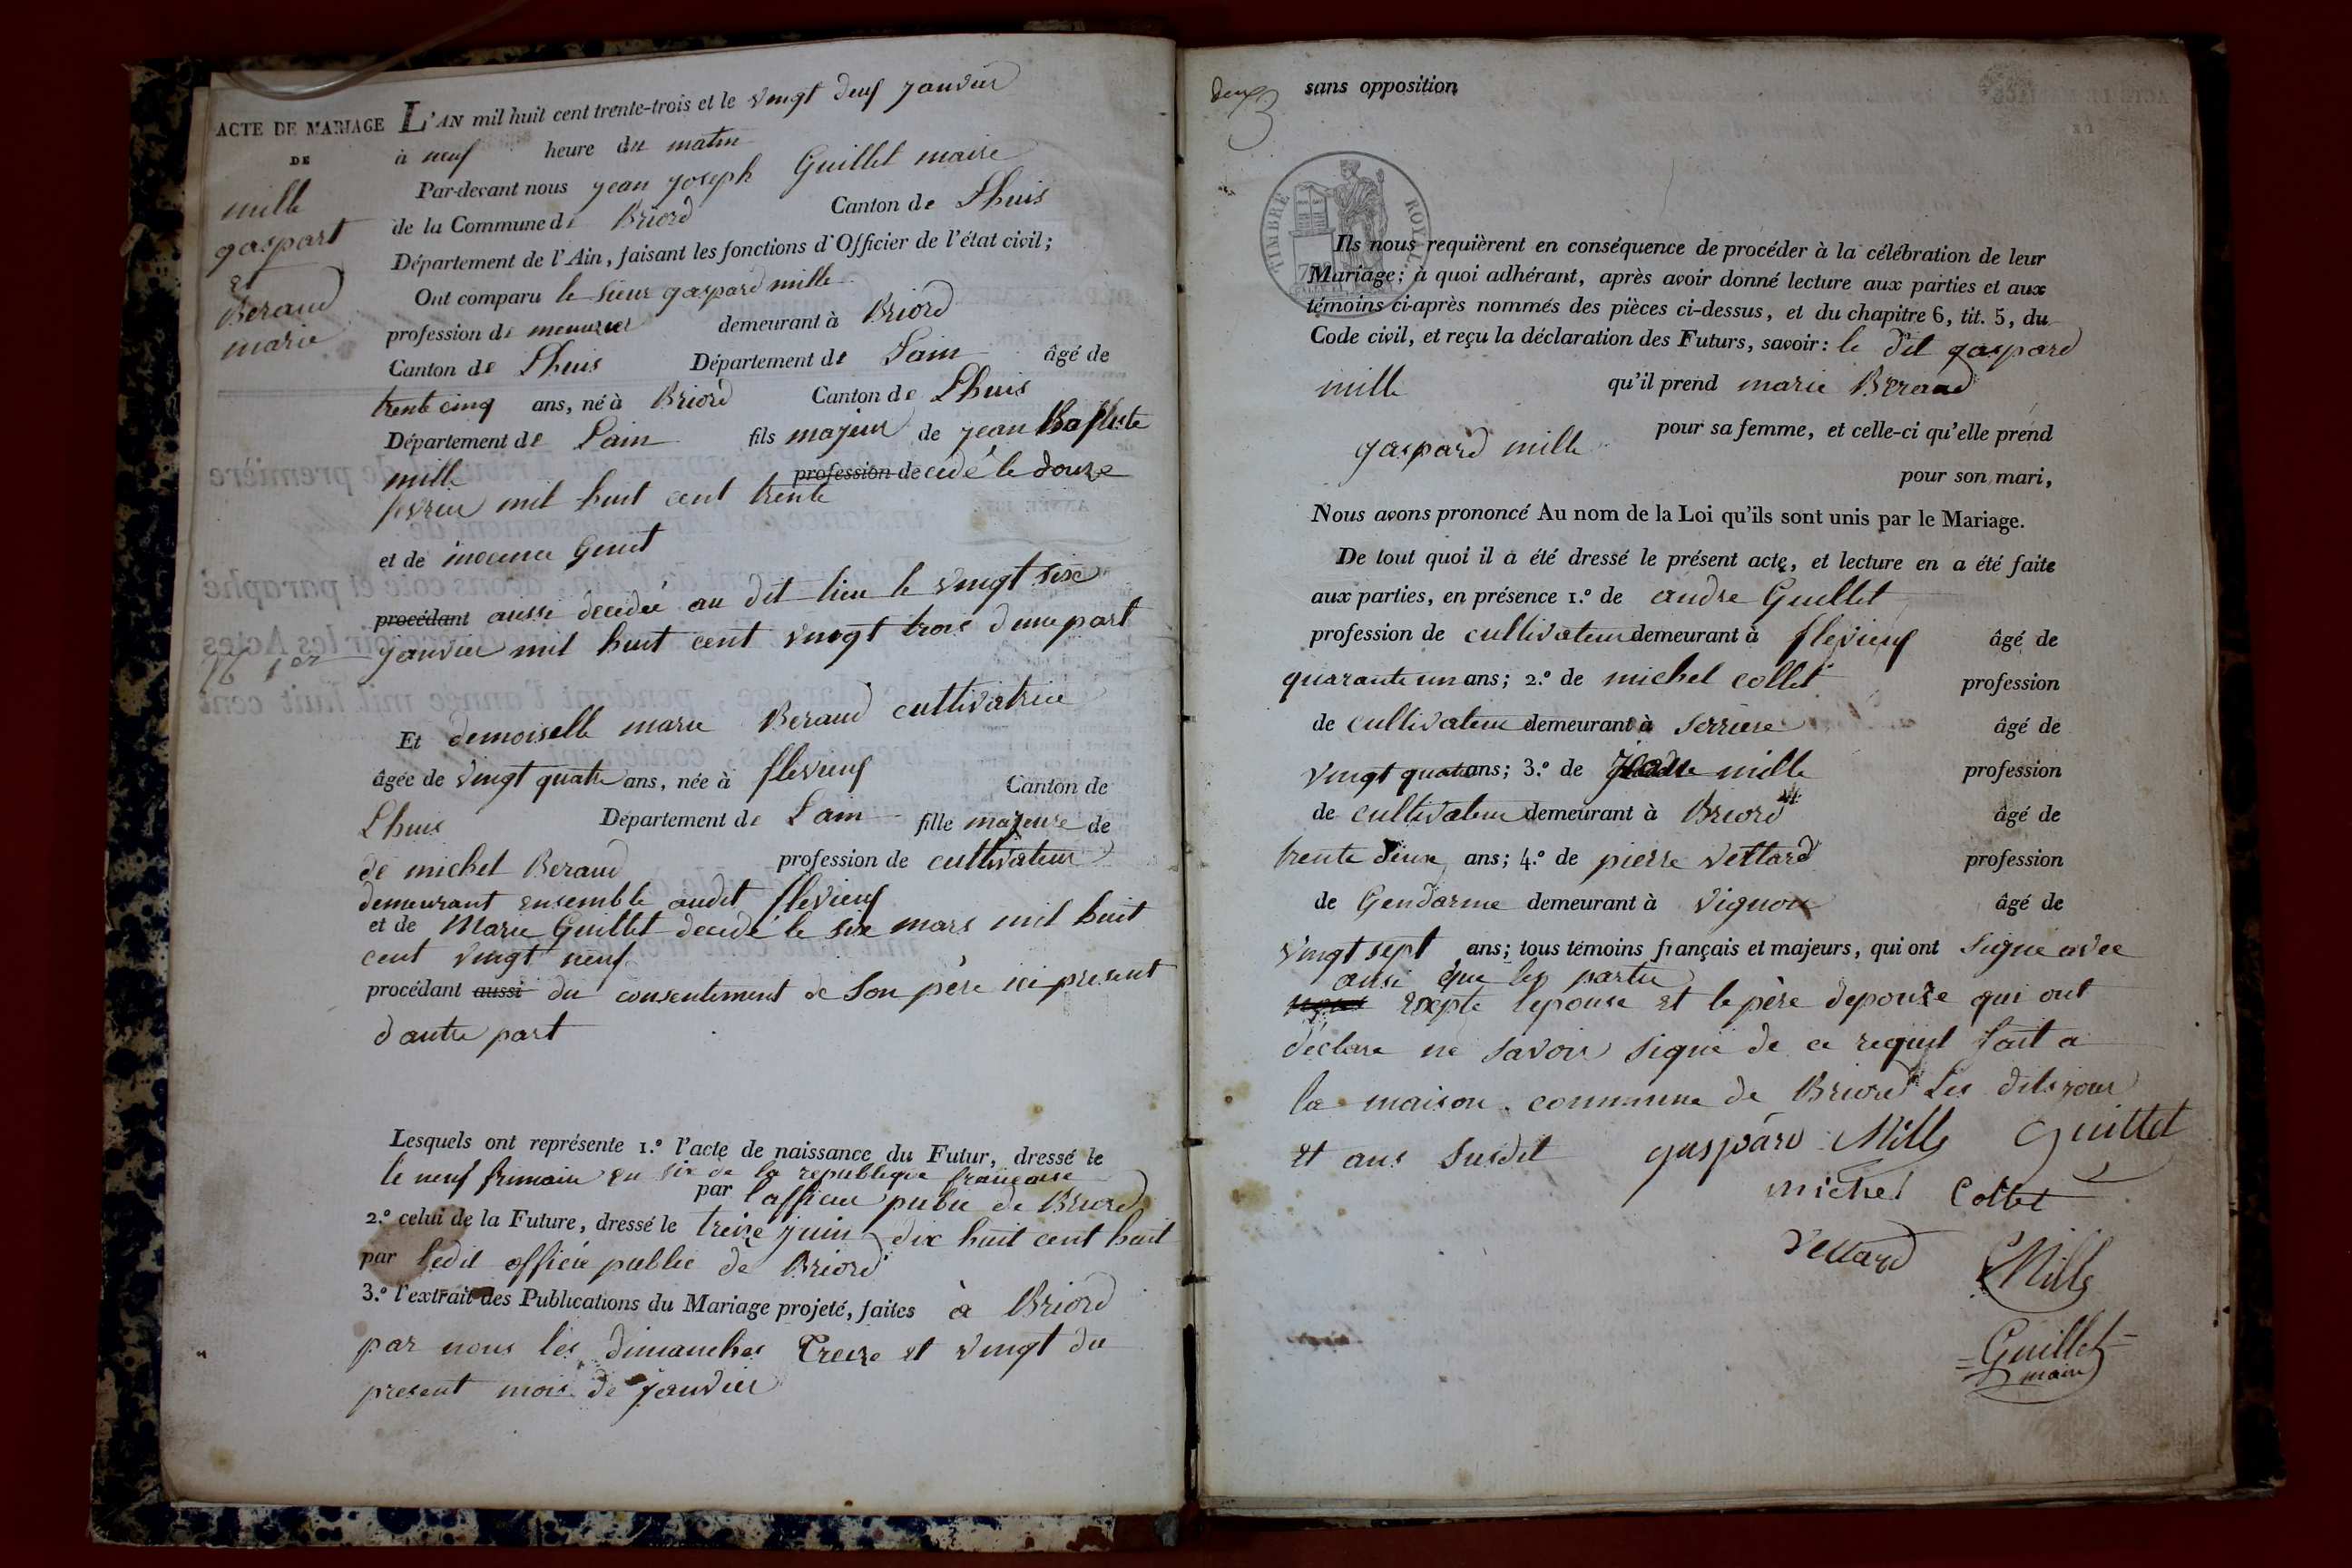 ACTE DE MARIAGE
DE
mille
gaspart
et
Beraud
marie
N° 1er
L'AN mil huit cent trente-trois et le vingt deuf janvier
à neuf heure du matin
Par-devant nous jean joseph Guillet maire
de la Commune de Briord Canton de Lhuis
Département de l'Ain, faisant les fonctions d'Officier de l'état civil;
Ont comparu le sieur gaspard mille
profession de menusier demeurant à Briord
Canton de Lhuis Département de Lain âgé de
trente cinq ans, né à Briord Canton de Lhuis
Département de Lain fils majeur de jean Baptiste
mille profession decedé le douze
fevrier mil huit cent trente
et de inocence Genet
procédant aussi decedée au dit lieu le vingt six
janvier mil huit cent vingt trois d'une part
Et demoiselle marie Beraud cultivatrice
âgée de vingt quatre ans, née à flevieuf Canton de
Lhuis Département de Lain fille majeure de
de michel Beraud profession de cultivateur
demeurant ensemble audit flevieuf
et de Marie Guillet decedé le six mars mil huit
cent vingt neuf
procédant aussi du consentement de son père ici present
d'autre part
Lesquels ont représente 1.º l'acte de naissance du Futur, dressé le
le neuf frimaire en six de la republique francaise
par l'officier public de Briord
2.º celui de la Future, dressé le treize juin dix huit cent huit
par ledit officier public de Briord
3.º l'extrait des Publications du Mariage projeté, faites à Briord
par nous les dimanches Treize et vingt du
present mois de janvier
deux
sans opposition
TIMBRE ROYAL
Ils nous requièrent en conséquence de procéder à la célébration de leur
Mariage; à quoi adhérant, après avoir donné lecture aux parties et aux
témoins ci-après nommés des pièces ci-dessus, et du chapitre 6, tit. 5, du
Code civil, et reçu la déclaration des Futurs, savoir: le dit gaspard
mille qu'il prend marie Beraud
pour sa femme, et celle-ci qu'elle prend
gaspard mille
pour son mari,
Nous avons prononcé Au nom de la Loi qu'ils sont unis par le Mariage.
De tout quoi il a été dressé le présent acte, et lecture en a été faite
aux parties, en présence 1.º de andre Guillet
profession de cultivateur demeurant à flevieuf âgé de
quarante un ans; 2.º de michel collet profession
de cultivateur demeurant à serriere âgé de
vingt quatre ans; 3.º de mille profession
de cultivateur demeurant à Briord âgé de
trente deux ans; 4.º de pierre vettard profession
de Gendarme demeurant à vignon âgé de
vingt sept ans; tous témoins français et majeurs, qui ont signe avec
ausi que les partie
excpte lepouse et le père depouse qui ont
declare ne savoir signe de ce requit fait a
la maison commune de Briord Les dits jour
et ans susdit gaspard Mille Guillet
michel Collet
vettard Mille
Guillet
maire